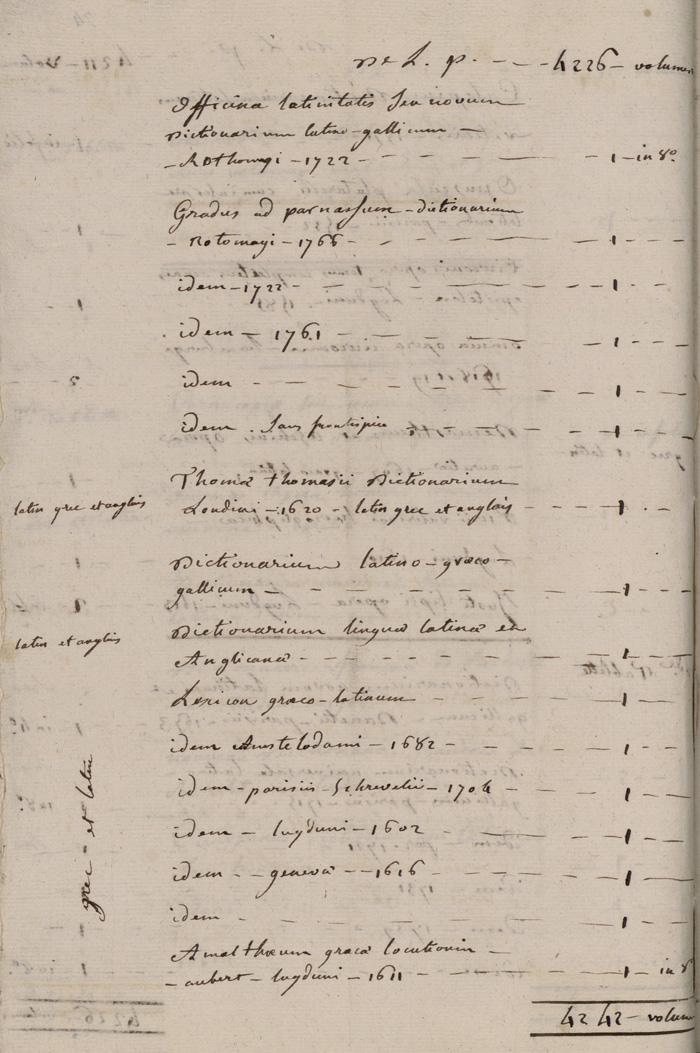 De L. p. - - - 4226 - volumes
Officina latinitatis seu novum
Dictionarium latino-gallicum -
- Rothomagi - 1722 - - - - - 1 - in 8º
Gradus ad parnassum - dictionarium
- Rotomagi - 1766 - - - - - 1 - -
idem - 1722 - - - - - 1 - -
idem - 1761 - - - - - 1 - -
idem - - - - - - 1 - -
idem . sans frontispice - - - 1 - -
Thomæ thomasii Dictionarium
latin grec et anglais Londini - 1620 - latin grec et anglais - 1 - -
Dictionarium latino-græco-
gallicum - - - - - - 1 - -
latin et anglais Dictionarium linguæ latinæ et
Anglicanæ - - - - - - 1 - -
Lexicon græco-latinum - - - 1 - -
idem Amstelodami - 1682 - - - 1 - -
idem - parisiis - Schrevelii - 1704 - - 1 - -
idem - lugduni - 1602 - - - 1 - -
idem - - genevæ - 1616 - - - 1 - -
idem - - - - - - 1 - -
grec - et latin
Amaltheum græcæ locutionis -
- aubert - lugduni - 1611 - - - 1 - in 8º
4242 - volum